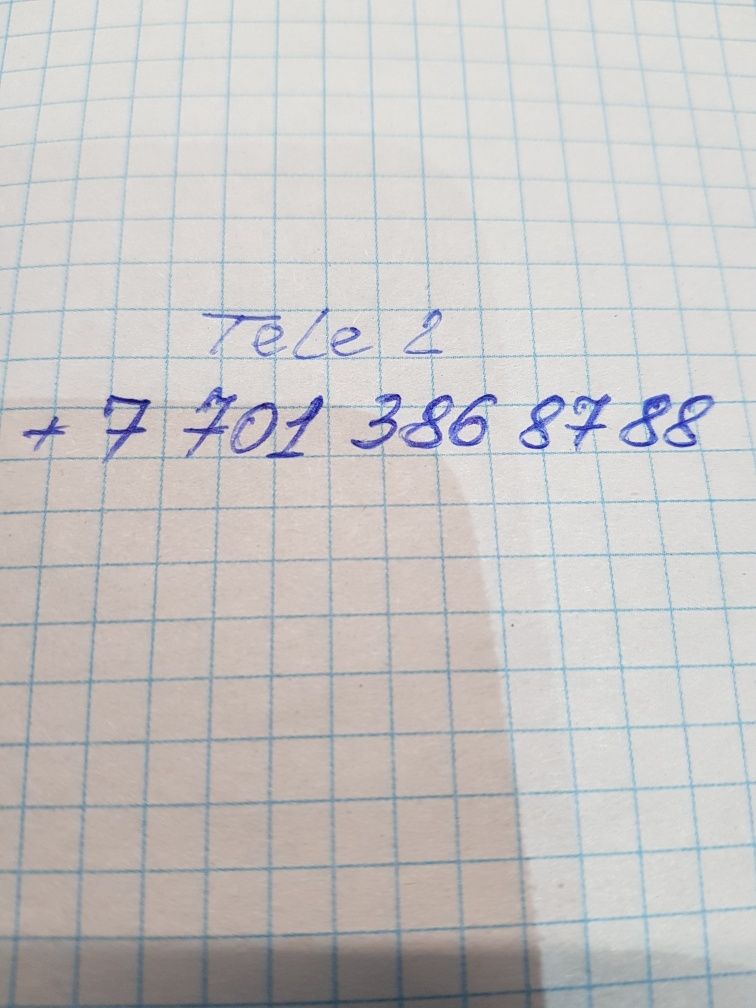 Tele 2
+ 7 701 386 87 88